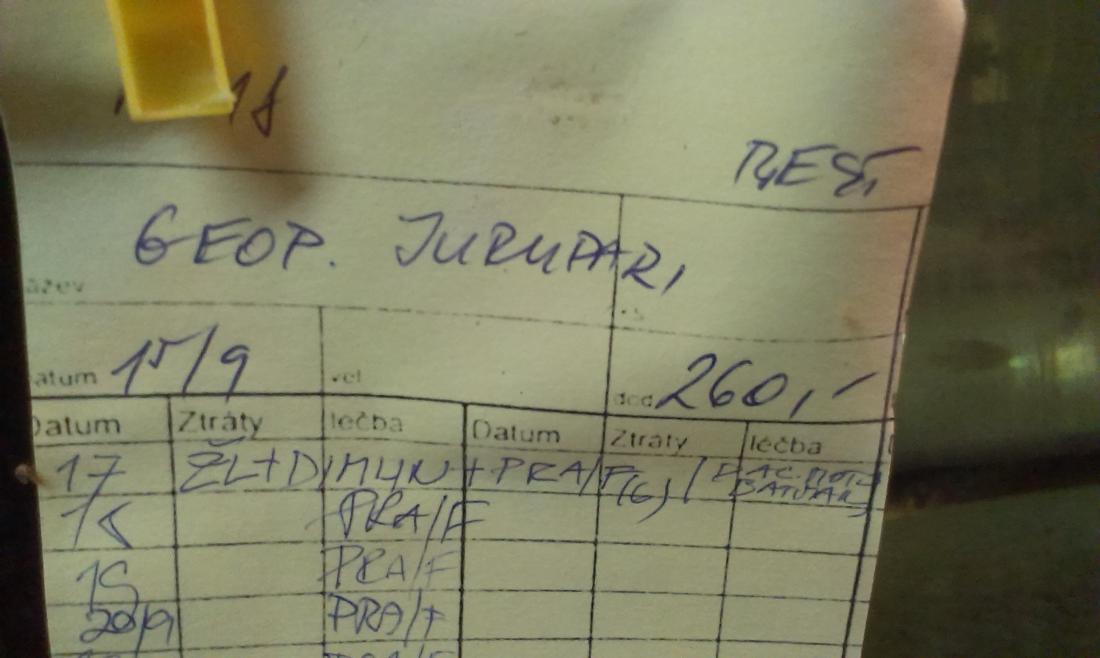 18
GEOP. JURUPARI
ázev
atum 15/9 vel dod 260,-
Datum Ztráty léčba Datum Ztráty léčba
17 ŽL+DIMUN+PRA/F(6)/
18 PRA/F
19 PRA/F
20/9 PRA/F
PRA/F